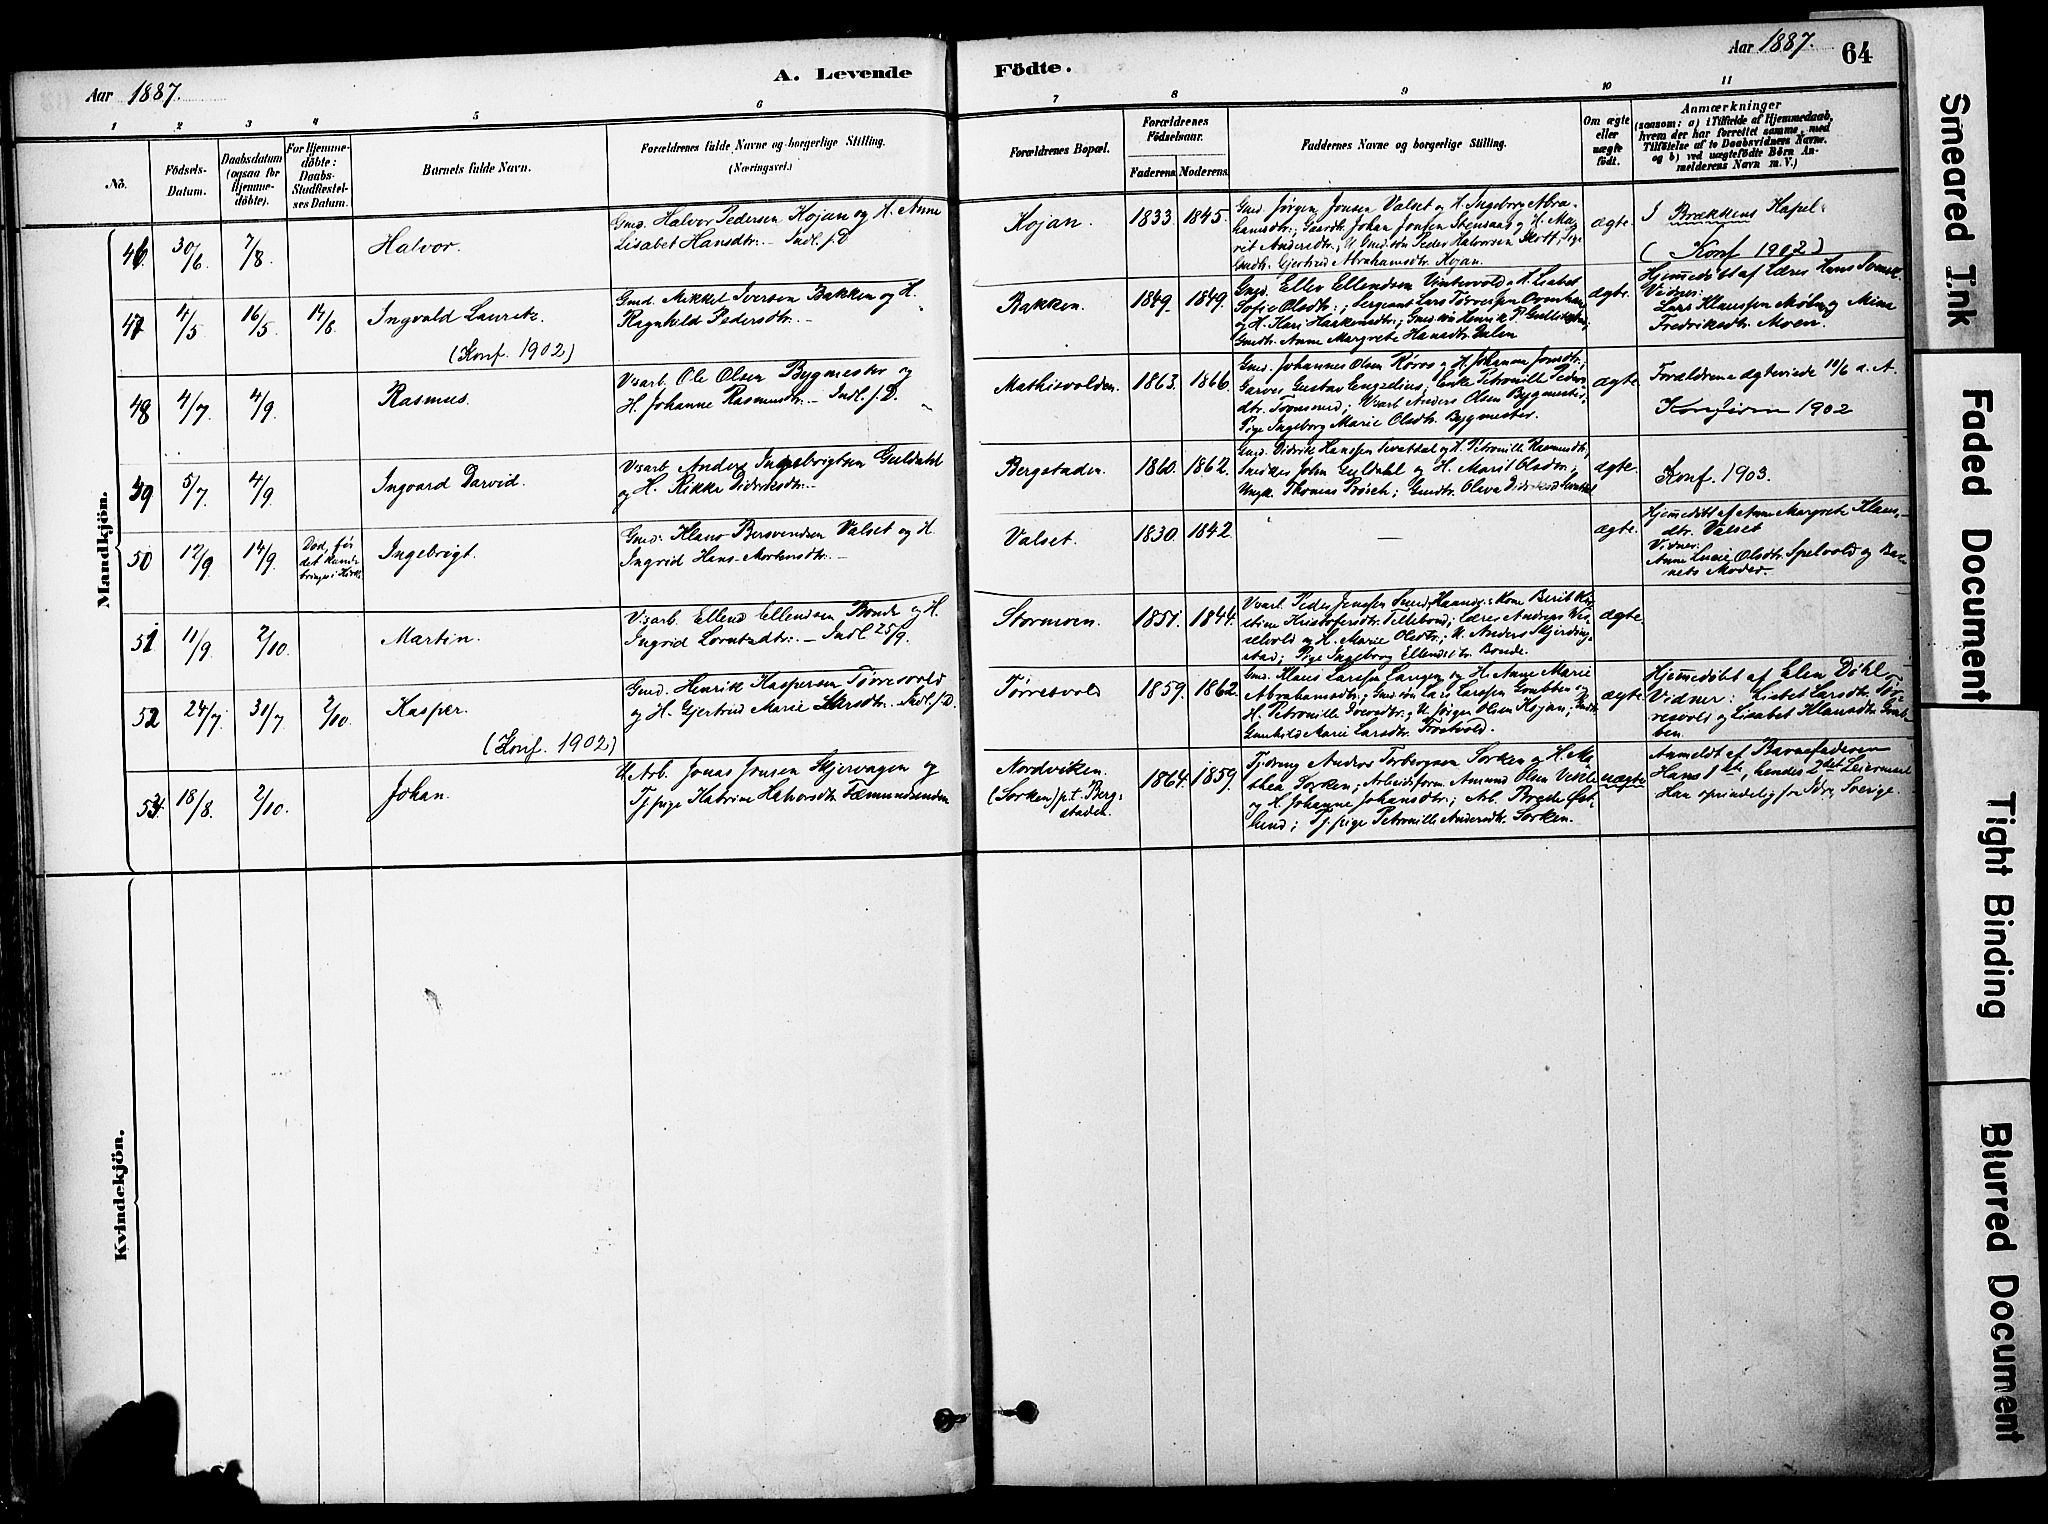 Aar 1887.
A. Levende
Födte.
Aar 1887.
64
1 2 3 4 5 6 7 8 9 10 11
No.
Födsels-Datum.
Daabsdatum (ogsaa for Hjemmedöbte).
For Hjemmedöbte: Daabs-Stadfæstelses Datum.
Barnets fulde Navn.
Forældrenes fulde Navne og borgerlige Stilling.
(Næringsvei.)
Forældrenes Bopæl.
Forældrenes Födselsaar.
Faderens Moderens
Faddernes Navne og borgerlige Stilling.
Om ægte eller uægte födt.
Anmærkninger
(saasom: a) i Tilfælde af Hjemmedaab,
hvem der har forrettet samme, med
Tilföielse af to Daabsvidners Navne,
og b) ved uægtefödte Börn An-
melderens Navn m. V.)
Mandkjön.
46. 30/6 7/8
Halvor.
Gmd. Halvor Pedersen Kojan og H. Anne
Lisabet Hansdtr. – Indl. f. D
Kojan. 1833. 1845.
Gmd. Jørgen Jonsen Valset og H. Ingeborg Abra-
hamsdtr.; Gaardbr. Johan Jonsen Stensaas og H. Ma-
rit Andersdtr.; U. Gmd.søn Peder Halvorsen Pige
Gmdtr. Gjertrud Abrahamsdtr. Kojan.
ægte.
I Brækkens Kapel.
(Konf 1902)
47 4/5 16/5 14/8
Ingvald Lauritz.
(Konf. 1902)
Gmd. Mikkel Iversen Bakken og H.
Ragnhild Pedersdtr. –
Bakken. 1849. 1849.
Gmd. Ellev Ellendsen Vintervold og H. Lisabet
Sofie Olsdtr.; Sergeant Lars
og H. Kari Haakensdtr.; Gmd.søn Henrik P.
Gmdtr. Anne Margrete Hansdtr. Dalen
ægte.
Hjemmedöbt af Lærer Hans
Vidner:
Lars Klaussen og Mina
Fredriksdtr. Moen.
48 4/7 4/9
Rasmus.
V:arb. Ole Olsen Bygmester og
H. Johanne Rasmusdtr. – Indl. f. D.
Mathisvolden. 1863. 1866.
Gmd. Johannes Olsen Röros og H. Johanne Jonsdtr.;
Garver Gustav Engzelius; Enke Petronille Peders-
dtr. V:arb. Anders Olsen Bygmester;
Pige Ingeborg Marie Olsdtr. Bygmester.
ægte.
Forældrene ægteviede 12/6 a. A.
Konfirm 1902
49 5/7 4/9
Ingvard Darvid.
V:arb. Anders Ingebrigtsen Guldahl
og H. Rikke Didriksdtr. –
Bergstaden. 1860. 1862.
Gmd. Didrik Hanssen og H. Petronille Rasmusdtr.,
Snedker John Guldahl og H. Marit Olsdtr.;
Ungk. Thomas Prösch; Gmdtr. Olava Didriksd.
ægte.
Konf. 1903.
50 12/9 14/9
Död, för det kunde bringes i Kirke
Ingebrigt.
Gmd: Klaus Bersvendsen Valset og H
Ingrid Hans-Mortensdtr. –
Valset. 1830. 1842.
–
ægte.
Hjemmedöbt af Anne Margrete Klaus-
dtr. Valset
Vidner:
Anne Lucie Olsdtr. Spelvold og Bar-
nets Moder.
51 11/9 2/10.
Martin.
V:arb. Ellend Ellendsen Bonde og H.
Ingrid Lorntsdtr. – Indl. 25/9.
Stormoen. 1851. 1844.
V:arb. Peder Jenssen Kone Berit Kri-
stine Kristofersdtr. Tellebond; Lærer Andreas
og H. Marie Olsdtr.; U. Anders Skjerding-
stad; Pige Ingeborg Ellendsdtr. Bonde.
ægte
52 24/7 31/7 2/10
Kasper.
(Konf. 1902)
Gmd. Henrik Kaspersen Törresvold
og H. Gjertrud Marie Larsdtr. Indl. f. D.
Törresvold 1859. 1862.
Gmd. Klaus Larsen Langen og H. Anne Marie
Abrahamsdtr.; Gmd.søn Lars Larssen Grubben og
H. Petronille Iversdtr.; U. Jørgen Olsen Kojan; Gmdtr.
Gunhild Marie Larsdtr.
ægte.
Hjemmedöbt af Elen Döhl.
Vidner: Lisbet Larsdtr. Tör-
resvold og Lisabet Klausdtr. Grub-
ben.
53. 18/8. 2/10.
Johan.
U Arb. Jonas Jonsen Skjervagen og
Tj.pige Katrine Halvorsdtr. Fæmundsenden
Nordviken.
(Sorken) p.t. Berg-
staden.
1864. 1859.
Anders Torbergsen Sorken og H. Ma-
thea Sorken; Arbeidsform. Amund Olsen
og H. Johanne Johansdtr.; Arb. Brede Öst-
lund; Tj.pige Petronille Andersdtr. Sorken.
uægte
Anmeldt af Barnefaderen
Hans 1ste, hendes 2det Leiermaal
Han oprindelig fra Idre, Sverige.
Kvindekjön.
Smeared Ink
Faded Document
Tight Binding
Blurred Document